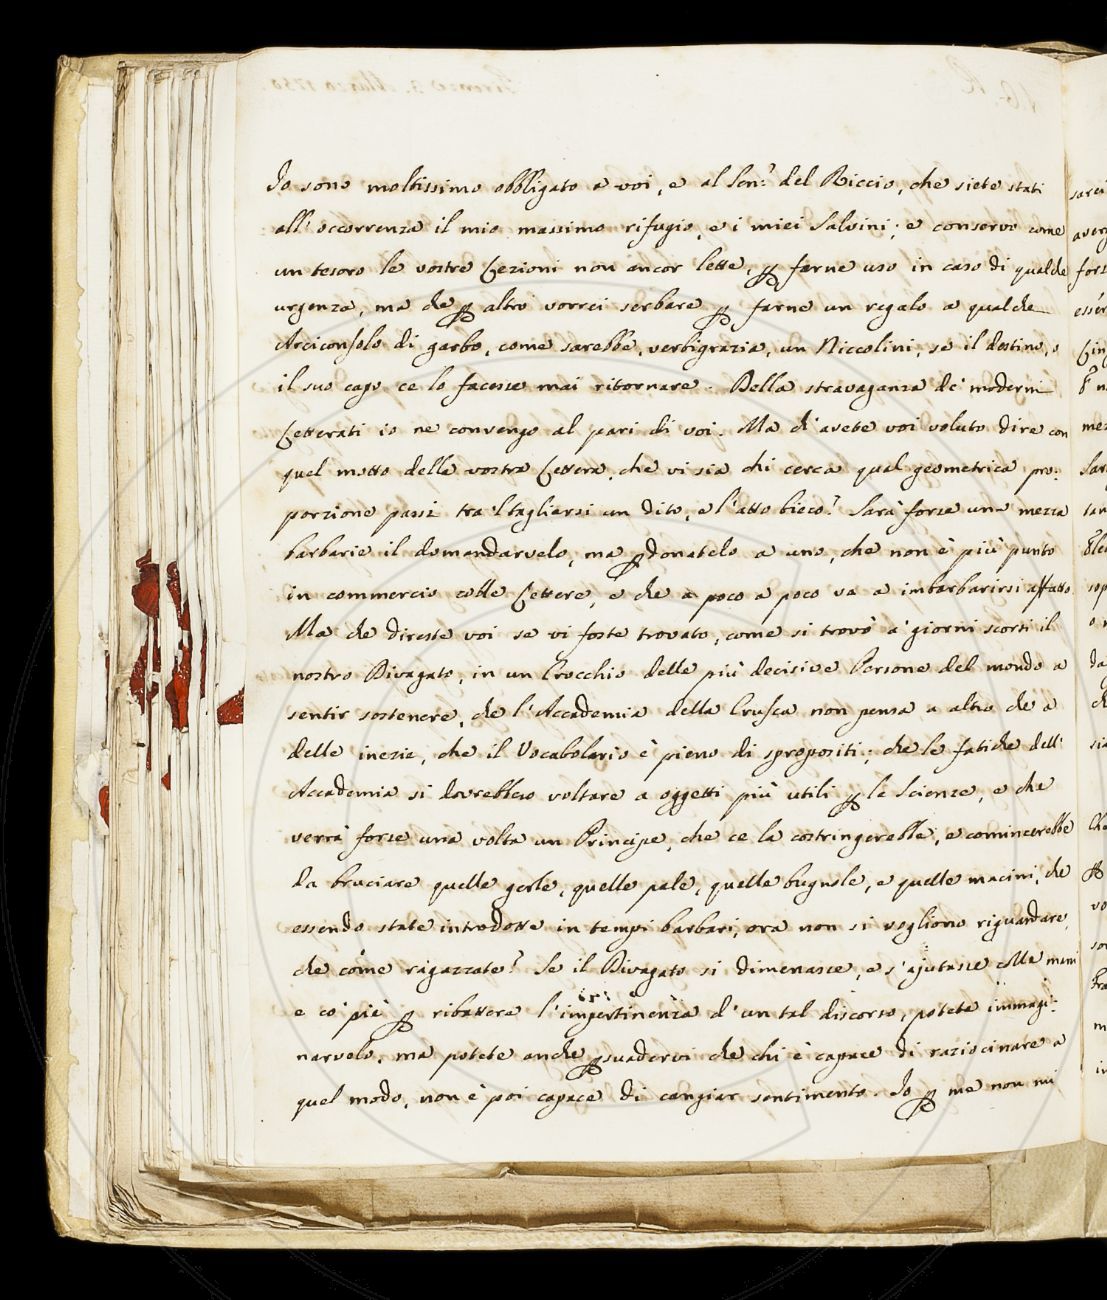 Io sono moltissimo obbligato a voi, e al Sen.r del Riccio, che siete stati
all'occorrenza il mio massimo rifugio, e i miei Salvini; e conservo come
un tesoro le vostre Lezioni non ancor lette, p farne uso in caso di qualche
urgenza, ma che p altro vorrei serbare p farne un regalo a qualche
Arciconsolo di garbo, come sarebbe, verbigrazia, un Niccolini, se il destino, o
il suo capo ce lo facesse mai ritornare. Bella stravaganza de' moderni
Letterati io ne convengo al pari di voi. Ma ch'avete voi voluto dire con
quel motto della vostra Lettera, che vi sia chi cerca qual geometrica pro:
porzione passi tra'l tagliarsi un dito, e l'atto bieco? Sarà forse una mezza
barbarie il domandarvelo, ma pdonatelo a uno, che non è più punto
in commercio colle Lettere, e che a poco a poco va a imbarbarirsi affatto.
Ma che direste voi se vi foste trovato, come si trovò a' giorni scorsi il
nostro Divagato, in un Crocchio delle più decisive Persone del mondo a
sentir sostenere, che l'Accademia della Crusca non pensa a altro che a
delle inezie, che il Vocabolario è pieno di spropositi; che le fatiche dell'
Accademia si dovrebbero voltare a oggetti più utili p le Scienze, e che
verrà forse una volta un Principe, che ce la costringerebbe, e comincerebbe
da bruciare quelle gerle, quelle pale, quelle bugnole, e quelle macini, che
essendo state introdotte in tempi barbari, ora non si vogliono riguardare,
che come ragazzate? Se il Divagato si dimenasse, e s'ajutasse colle mani
e co' piè p ribattere l'impertinenza d'un tal discorso, potete immagi:
narvelo, ma potete anche psuadervi che chi è capace di raziocinare a
quel modo, non è poi capace di cangiar sentimento. Io p me non mi